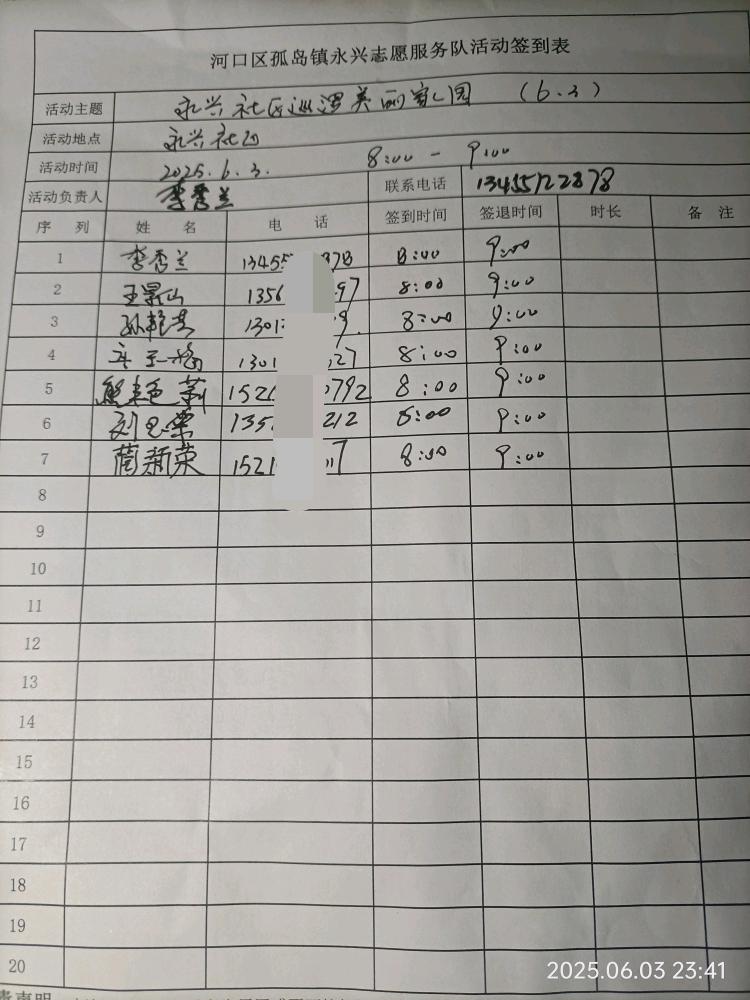 河口区孤岛镇永兴志愿服务队活动签到表
活动主题 永兴社区巡逻美丽家园 (6.3)
活动地点 永兴社区
活动时间 2025.6.3. 8:00 - 9:00
活动负责人 李秀兰 联系电话 13455122878
序 列 姓 名 电 话 签到时间 签退时间 时长 备 注
1 李秀兰 13455 878 8:00 9:00
2 王景山 1356 97 8:00 9:00
3 1301 9. 8:00 9:00
4 1301 27 8:00 9:00
5 1521 792 8:00 9:00
6 135 212 8:00 9:00
7 蔺新荣 1521 17 8:00 9:00
8
9
10
11
12
13
14
15
16
17
18
19
20
2025.06.03 23:41
责声明